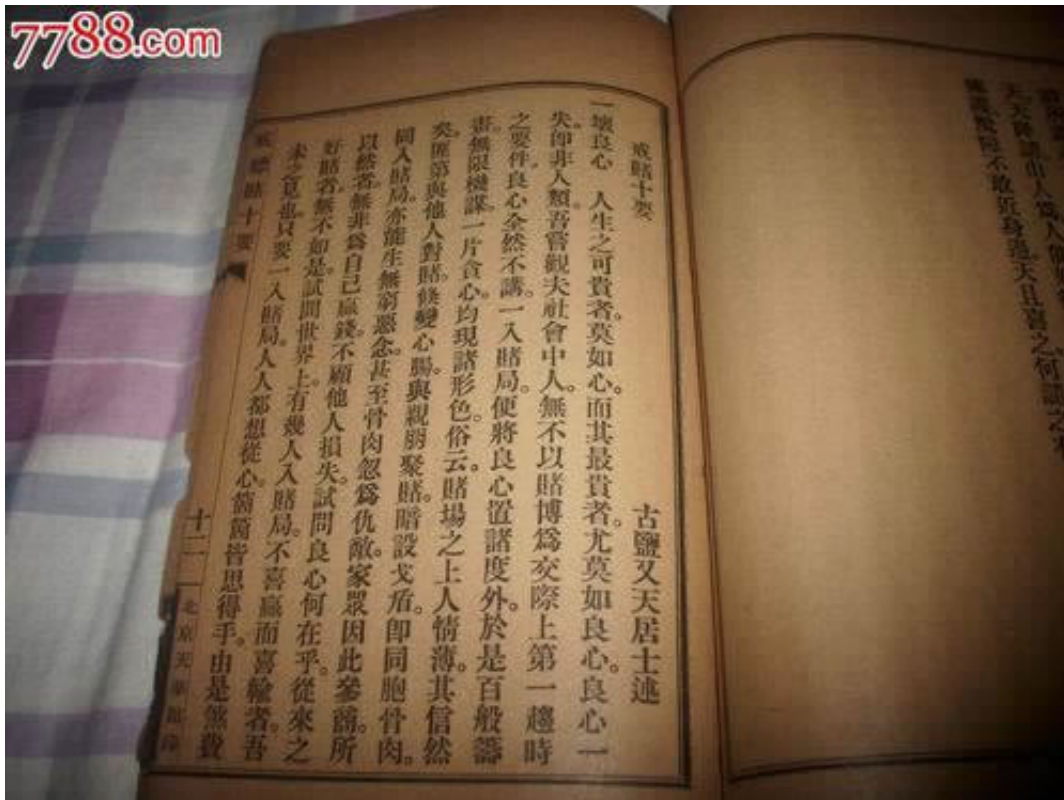 7788.com
天大隆謴由人爲人個
幾盡驚陰不敢近身過天且喜之何
戒賭十要
古鹽又天居士述
一壞良心 人生之可貴者。莫如心。而其最貴者。尤莫如良心。良心一
失。卽非人類。吾嘗觀夫社會中人。無不以賭博爲交際上第一趨時
之要件。良心全然不講。一入賭局。便將良心置諸度外。於是百般籌
畫。無限機謀。一片貪心。均現諸形色。俗云。賭場之上人情薄。其信然
矣。匪第與他人對賭。倏變心腸。與親朋聚賭。暗設戈盾。卽同胞骨肉。
同入賭局。亦能生無窮惡念。甚至骨肉忽爲仇敵。家眾因此參商。所
以然者。無非爲自己贏錢。不顧他人損失。試問良心何在乎。從來之
好賭者。無不如是。試問世界上。有幾人入賭局。不喜贏而喜輸者。吾
未之見也。只要一入賭局。人人都想從心。箇箇皆思得手。由是煞費
戒賭十要
十二
北京天華館印